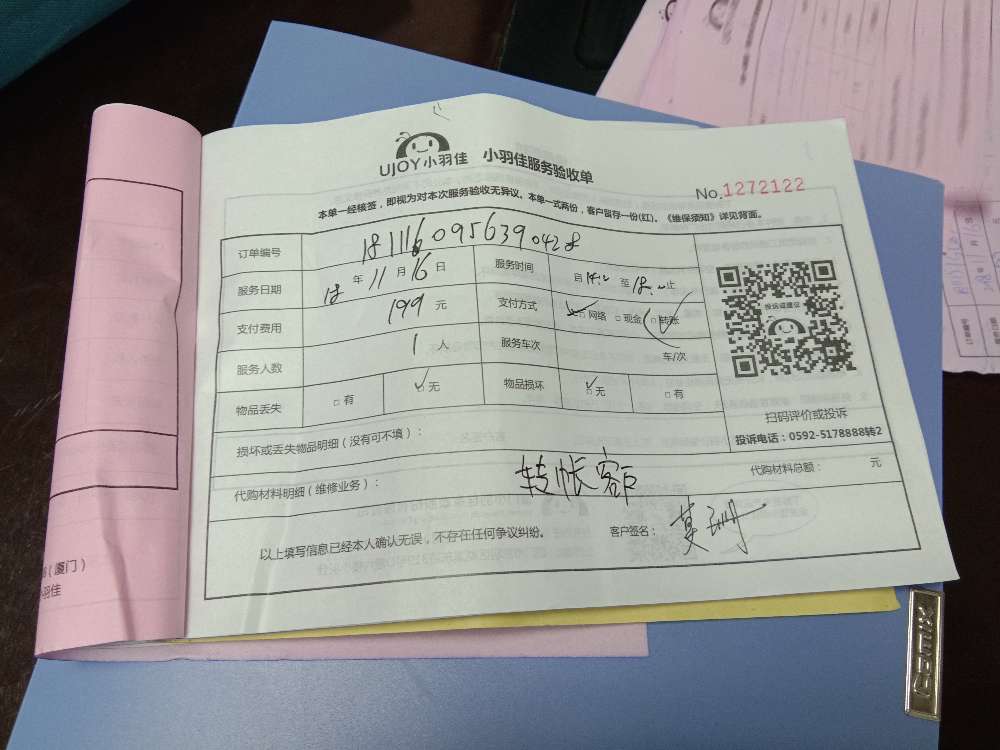 UJOY小羽佳 小羽佳服务验收单
No.1272122
本单一经核签，即视为对本次服务验收无异议。本单一式两份，客户留存一份(红)。《维保须知》详见背面。
订单编号 1811160956390428
服务日期 18 年 11 月 16 日 服务时间 自 14:00 至 18:00 止
支付费用 199 元 支付方式 □网络 □现金 □转账
服务人数 1 人 服务车次 车/次
物品丢失 □有 □无 物品损坏 □无 □有
投诉或建议
扫码评价或投诉
投诉电话：0592-5178888转2
损坏或丢失物品明细（没有可不填）：
代购材料明细（维修业务）： 转帐客户 代购材料总额： 元
以上填写信息已经本人确认无误，不存在任何争议纠纷。 客户签名：
（厦门）
羽佳
COMIX